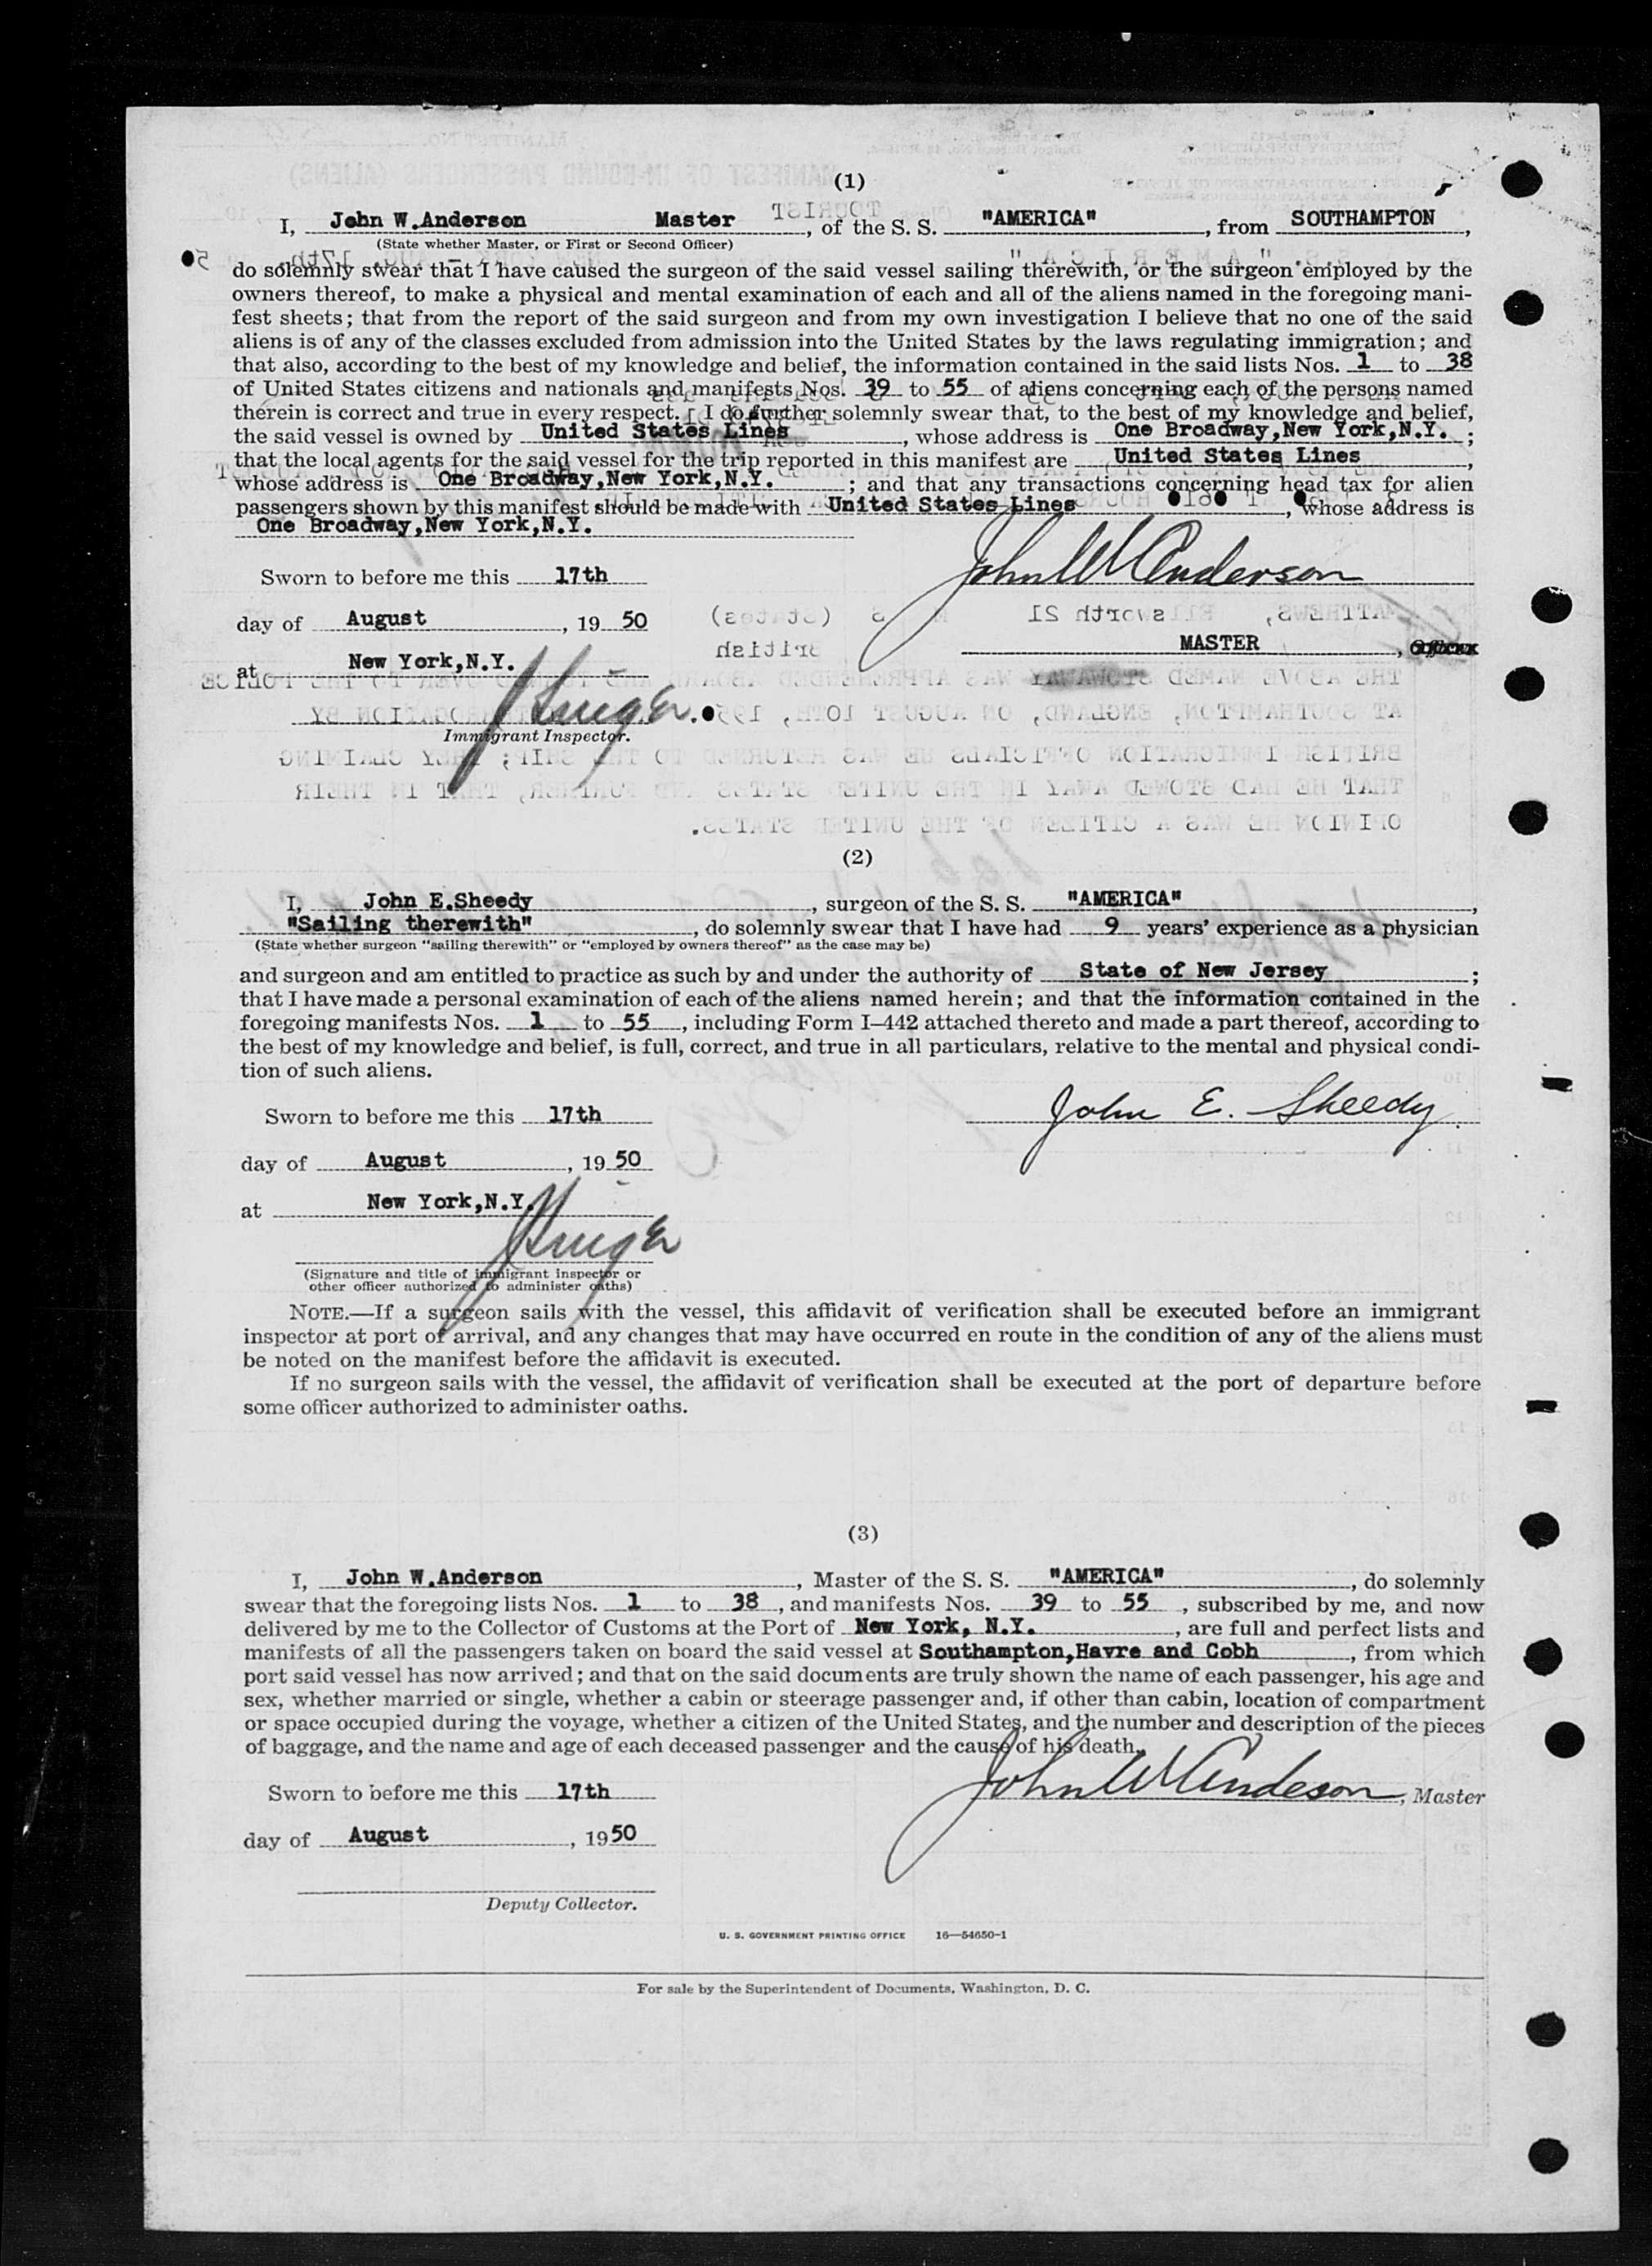 (1)
I, John W.Anderson Master, of the S. S. "AMERICA", from SOUTHAMPTON,
(State whether Master, or First or Second Officer)
do solemnly swear that I have caused the surgeon of the said vessel sailing therewith, or the surgeon employed by the
owners thereof, to make a physical and mental examination of each and all of the aliens named in the foregoing mani-
fest sheets; that from the report of the said surgeon and from my own investigation I believe that no one of the said
aliens is of any of the classes excluded from admission into the United States by the laws regulating immigration; and
that also, according to the best of my knowledge and belief, the information contained in the said lists Nos. 1 to 38
of United States citizens and nationals and manifests Nos. 39 to 55 of aliens concerning each of the persons named
therein is correct and true in every respect. I do further solemnly swear that, to the best of my knowledge and belief,
the said vessel is owned by United States Lines, whose address is One Broadway,New York,N.Y. ;
that the local agents for the said vessel for the trip reported in this manifest are United States Lines,
whose address is One Broadway,New York,N.Y. ; and that any transactions concerning head tax for alien
passengers shown by this manifest should be made with United States Lines, whose address is
One Broadway,New York,N.Y.
Sworn to before me this 17th John W Anderson
day of August, 19 50
MASTER, Officer
at New York,N.Y.
Immigrant Inspector.
TOURIST
MATTHEWS, Ellsworth 21 (States)
British
THE ABOVE NAMED STOWAWAY WAS APPREHENDED ABOARD AND TURNED OVER TO THE POLICE
AT SOUTHAMPTON, ENGLAND, ON AUGUST 10TH, 195
BRITISH IMMIGRATION OFFICIALS HE WAS RETURNED TO THE SHIP; THEY CLAIMING
THAT HE HAD STOWED AWAY IN THE UNITED STATES AND FURTHER, THAT IN THEIR
OPINION HE WAS A CITIZEN OF THE UNITED STATES.
(2)
I, John E.Sheedy, surgeon of the S. S. "AMERICA",
"Sailing therewith", do solemnly swear that I have had 9 years' experience as a physician
(State whether surgeon "sailing therewith" or "employed by owners thereof" as the case may be)
and surgeon and am entitled to practice as such by and under the authority of State of New Jersey ;
that I have made a personal examination of each of the aliens named herein; and that the information contained in the
foregoing manifests Nos. 1 to 55, including Form I–442 attached thereto and made a part thereof, according to
the best of my knowledge and belief, is full, correct, and true in all particulars, relative to the mental and physical condi-
tion of such aliens.
Sworn to before me this 17th John E. Sheedy
day of August, 19 50
at New York,N.Y.
(Signature and title of immigrant inspector or
other officer authorized to administer oaths)
NOTE.—If a surgeon sails with the vessel, this affidavit of verification shall be executed before an immigrant
inspector at port of arrival, and any changes that may have occurred en route in the condition of any of the aliens must
be noted on the manifest before the affidavit is executed.
If no surgeon sails with the vessel, the affidavit of verification shall be executed at the port of departure before
some officer authorized to administer oaths.
(3)
I, John W.Anderson, Master of the S. S. "AMERICA", do solemnly
swear that the foregoing lists Nos. 1 to 38, and manifests Nos. 39 to 55, subscribed by me, and now
delivered by me to the Collector of Customs at the Port of New York, N.Y., are full and perfect lists and
manifests of all the passengers taken on board the said vessel at Southampton,Havre and Cobh, from which
port said vessel has now arrived; and that on the said documents are truly shown the name of each passenger, his age and
sex, whether married or single, whether a cabin or steerage passenger and, if other than cabin, location of compartment
or space occupied during the voyage, whether a citizen of the United States, and the number and description of the pieces
of baggage, and the name and age of each deceased passenger and the cause of his death.
Sworn to before me this 17th John W Anderson, Master
day of August, 19 50
Deputy Collector.
U. S. GOVERNMENT PRINTING OFFICE 16—54650-1
For sale by the Superintendent of Documents, Washington, D. C.